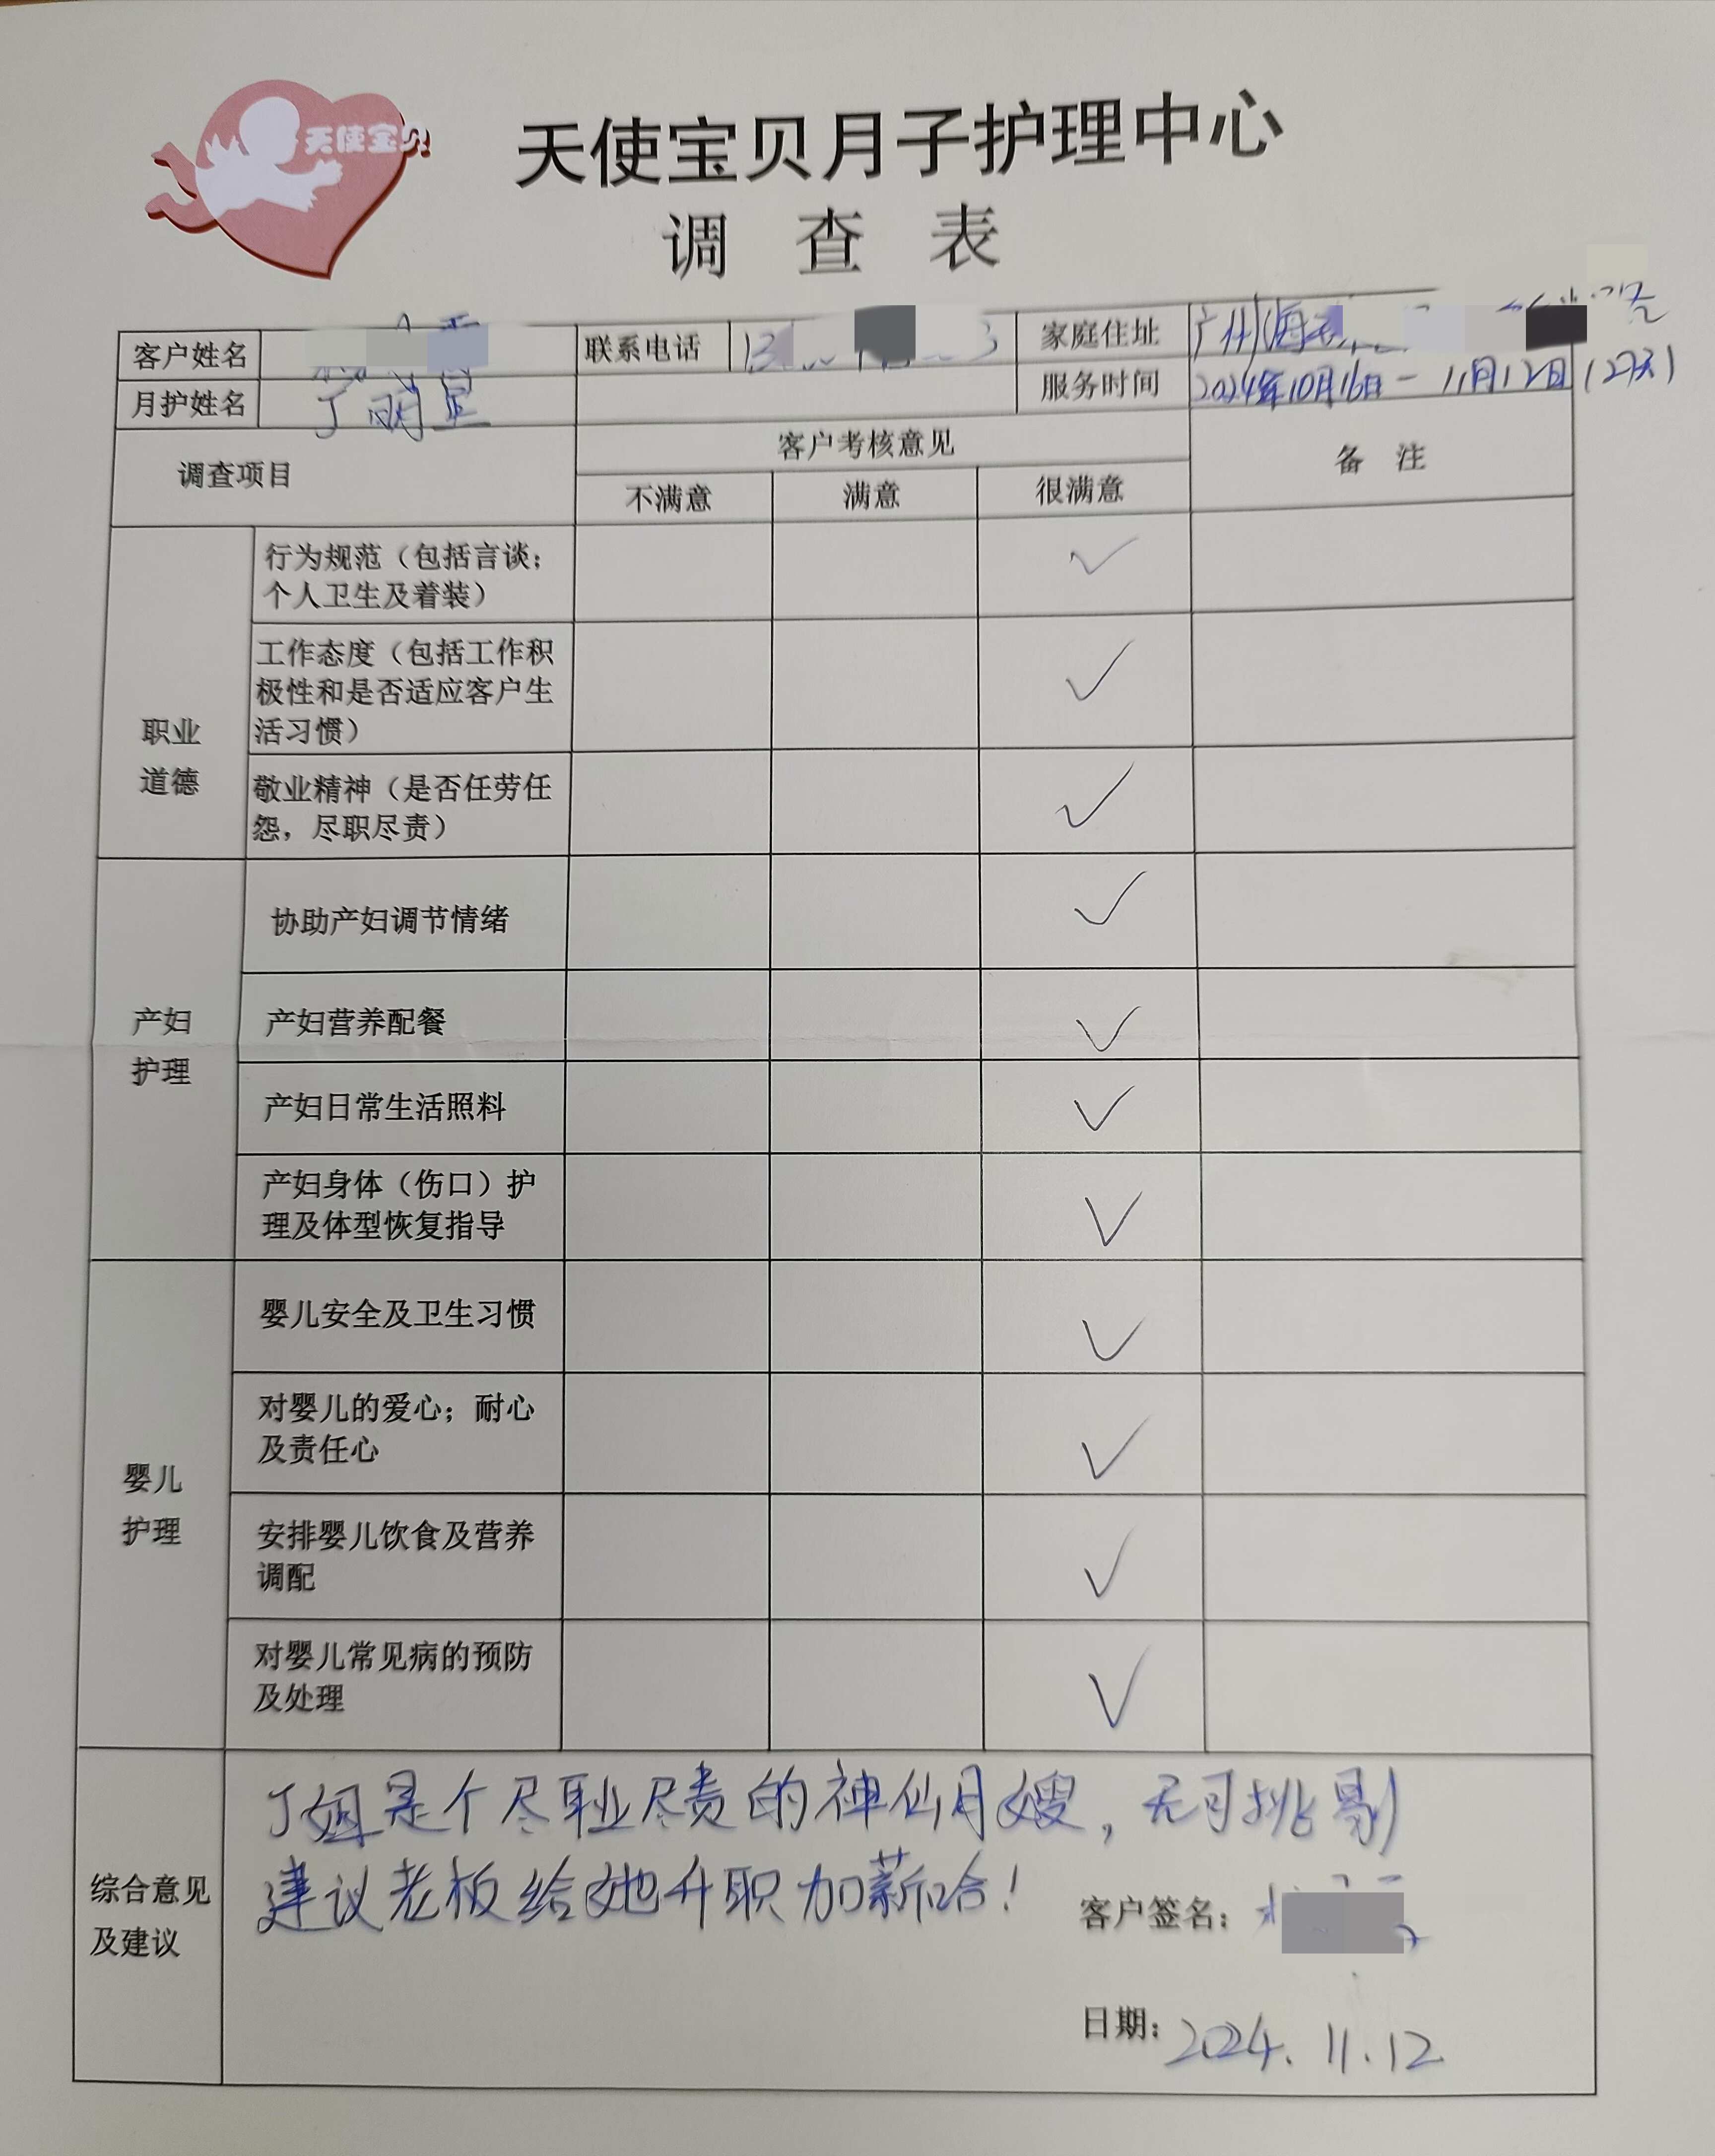 天使宝贝
天使宝贝月子护理中心
调查表
客户姓名
联系电话
家庭住址 广州海
月护姓名 丁明
服务时间 2024年10月16日-11月12日(27天)
调查项目
客户考核意见
备注
不满意 满意 很满意
职业
道德
行为规范（包括言谈；
个人卫生及着装）
✓
工作态度（包括工作积
极性和是否适应客户生
活习惯）
✓
敬业精神（是否任劳任
怨，尽职尽责）
✓
产妇
护理
协助产妇调节情绪
✓
产妇营养配餐
✓
产妇日常生活照料
✓
产妇身体（伤口）护
理及体型恢复指导
✓
婴儿
护理
婴儿安全及卫生习惯
✓
对婴儿的爱心；耐心
及责任心
✓
安排婴儿饮食及营养
调配
✓
对婴儿常见病的预防
及处理
✓
综合意见
及建议
丁姐是个尽职尽责的神仙月嫂，无可挑剔
建议老板给她升职加薪哈！
客户签名：
日期：2024.11.12